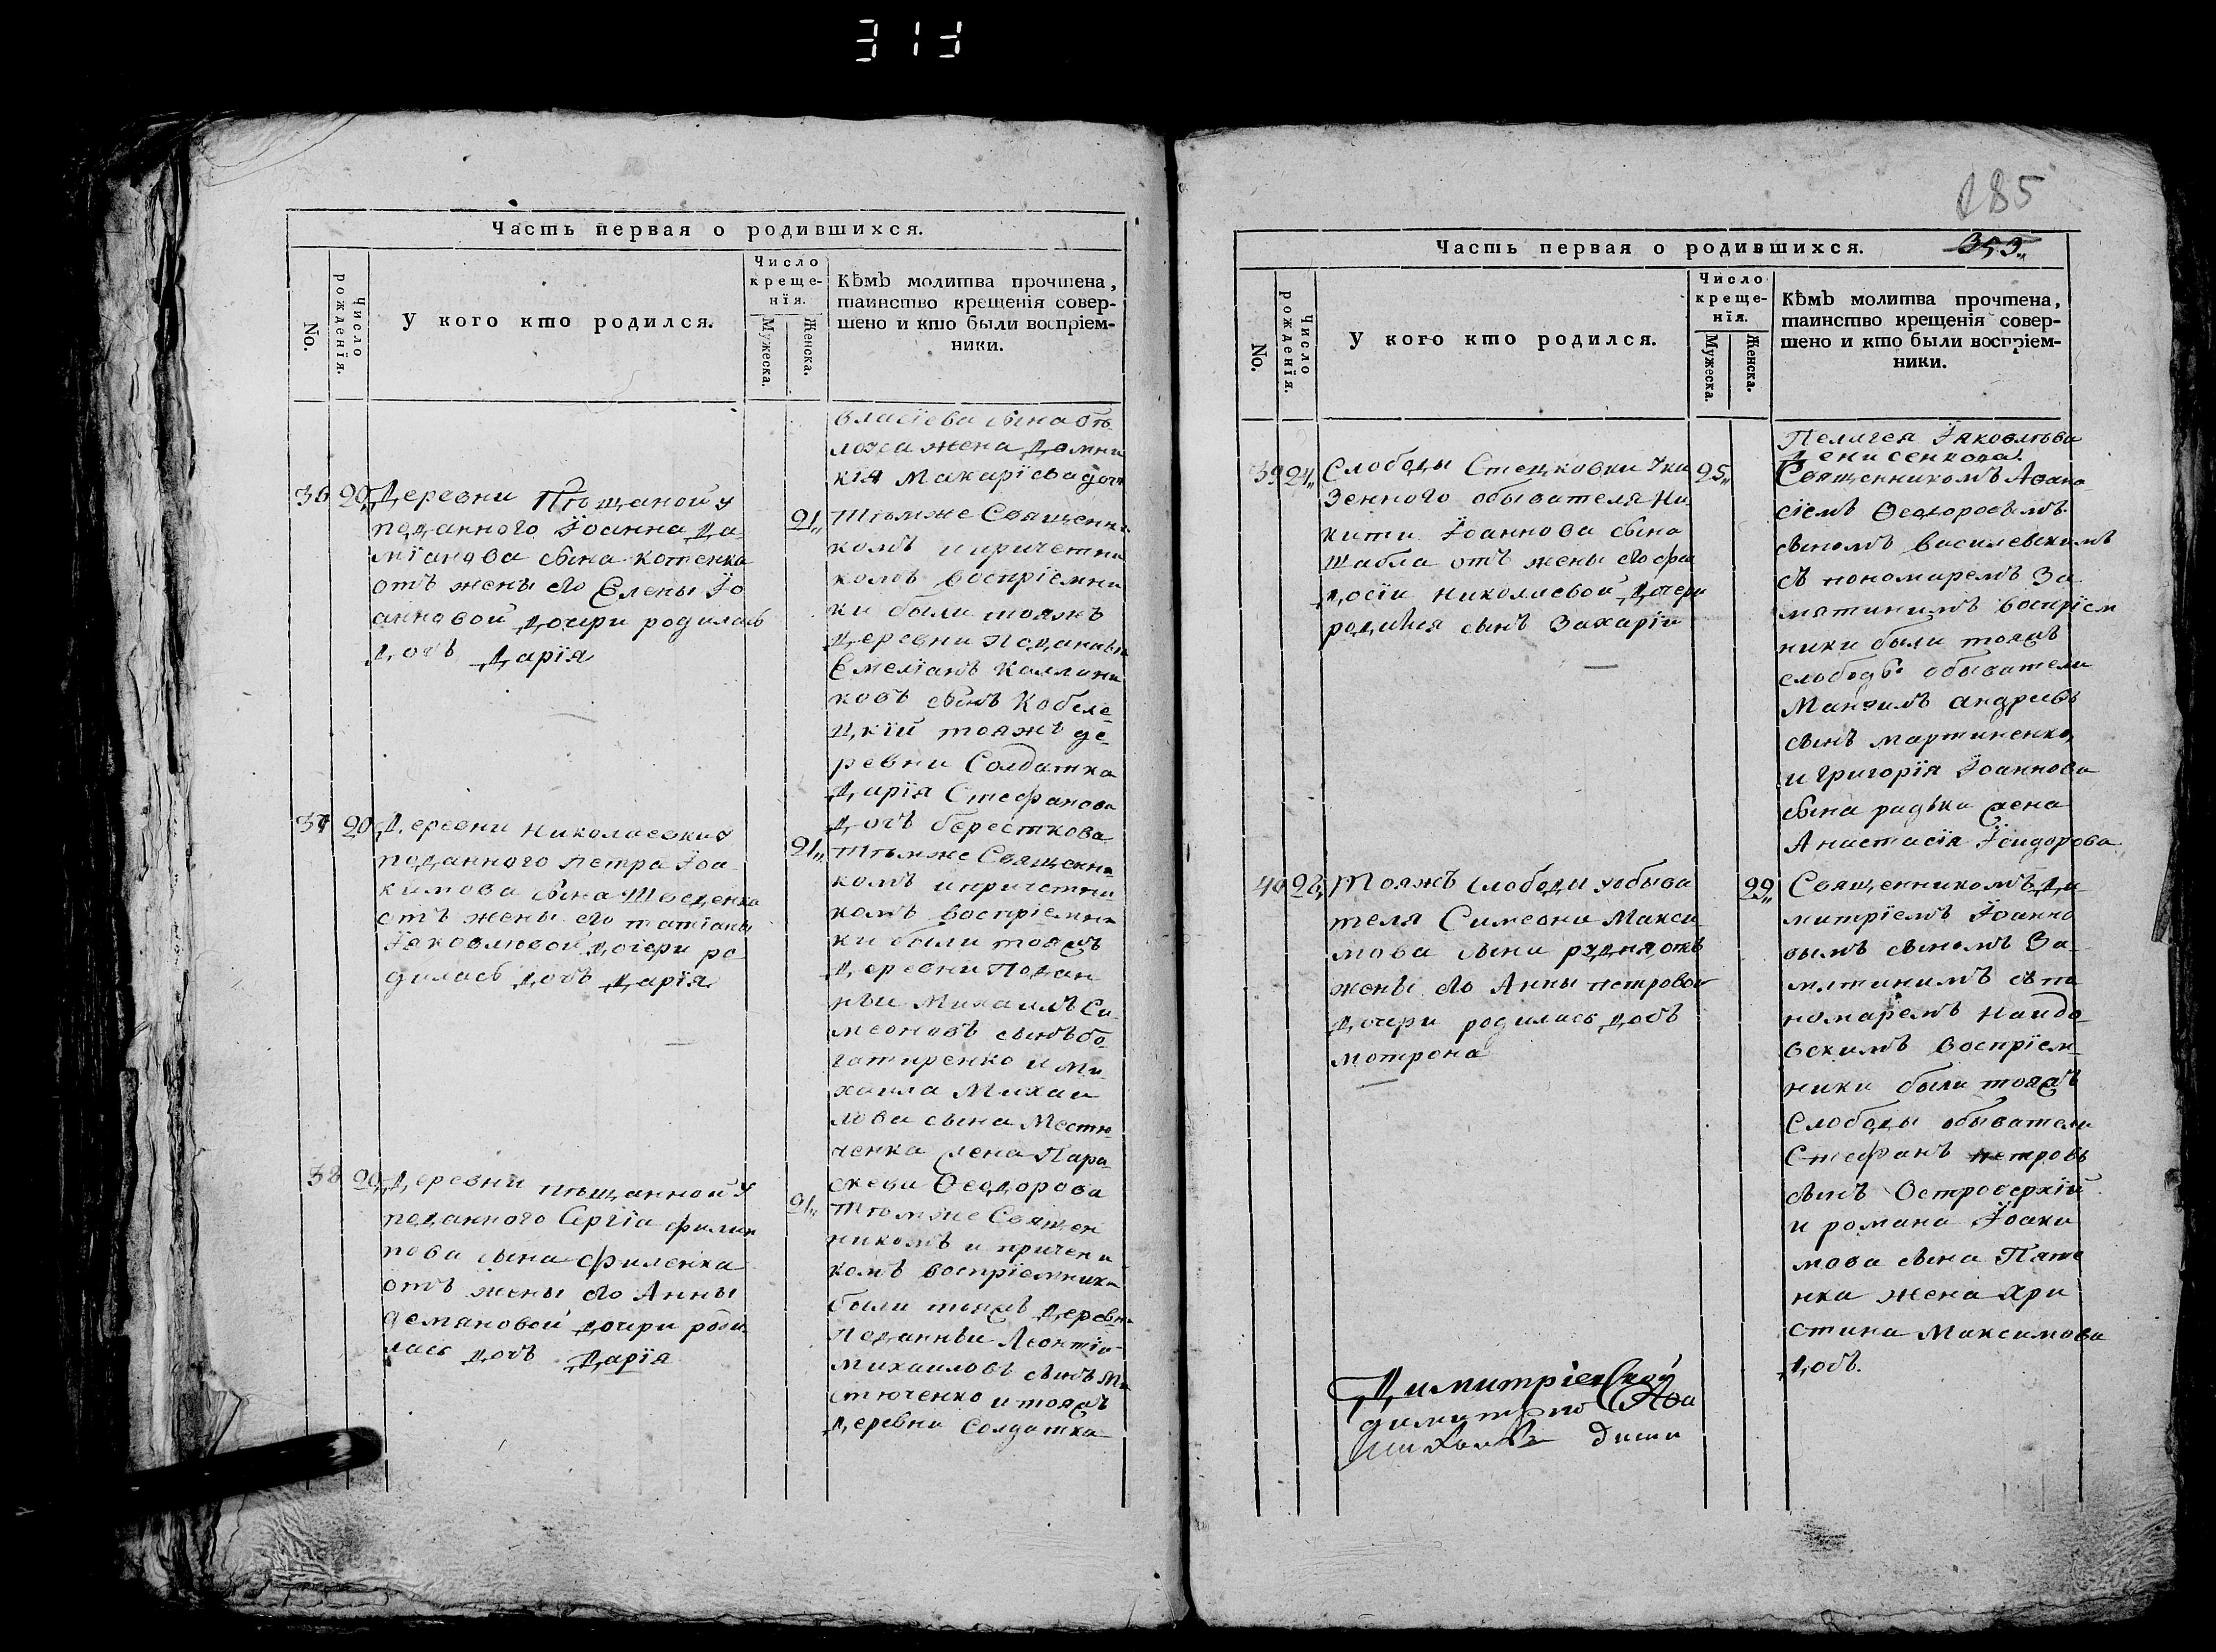 313
Часть первая о родившихся.
No.
Число рожденїя.
У кого кто родился.
Число крещенїя.
Мужеска.
Женска.
Кѣмъ молитва прочтена,
таинство крещенія совер-
шено и кто были воспріем-
ники.
власїева сына Бѣ
лоуса жена Домни
кїя Макарїева доч
36 20 Деревни Пѣщаной у
подданного Їоанна Да
мїанова сына Котенка
отъ жены его Елены Їо
анновой дочери родилась
дочь Дарїя
21 Тѣмже Священни
комъ и причетни
комъ воспрїемни
ки были тояжъ
деревни Подданны
Емелїанъ Каллини
ковъ сынъ Кобеле
цкїй тояжъ де
ревни Солдатка
Дарїя Стефанова
дочь Бересткова
37 20 Деревни Николаевки у
подданного Петра Їоа
кимова сына Шведенка
отъ жены его Татїаны
Їаковлевой дочери ро
дилась дочь Дарїя
21 Тѣмже Священни
комъ и причетни
комъ воспрїемни
ки были тояжъ
деревни Поддан
ныи Михаилъ Си
меоновъ сынъ Бо
гатиренко и Ми
хаила Михаи
лова сына Местю
ченка жена Пара
скева Ѳеодорова
38 20 Деревни Пѣщанной у
подданного Сергїа Филип
пова сына Филенка
отъ жены его Анны
Демяновой дочери роди
лась дочь Дарїя
21 Тѣмже Священ
никомъ и причетни
комъ воспрїемники
были тояжъ деревни
Подданныи Леонтїй
Михаиловъ сынъ Ме
стюченко и тояжъ
деревни Солдатка
185
353
Часть первая о родившихся.
No.
Число рожденїя.
У кого кто родился.
Число крещенїя.
Мужеска.
Женска.
Кѣмъ молитва прочтена,
таинство крещенія совер-
шено и кто были воспріем-
ники.
Пелагея Їяковлева
Денисенкова.
39 24 Слободы Стецковки у ка
зенного обывателя Ни
киты Їоаннова сына
Шабла отъ жены его Фео
досїи Николаевой дочери
родился сынъ Захарїй
25 Священникомъ Аѳана
сїемъ Ѳеодоровымъ
сыномъ Василевскимъ
съ пономаремъ За
мятинимъ воспрїем
ники были тояжъ
слободы обыватели
Мануилъ Андреевъ
сынъ Мартиненко
и Григорїя Їоаннова
сына Радька жена
Анастасїя Їсидорова
40 28 Тояжъ слободы у обыва
теля Симеона Макси
мова сына Рудня отъ
жены его Анны Петровой
дочери родилась дочь
Мотрона
29 Священникомъ Ди
митрїемъ Їоанно
вымъ сыномъ За
мятинимъ съ по
номаремъ Наидо
вскимъ воспрїем
ники были тояжъ
Слободы обыватели
Стефанъ Петровъ
сынъ Островерхїй
и Романа Їоаки
мова сына Пяте
нка жена Хри
стина Максимова
дочь.
Димитріевской